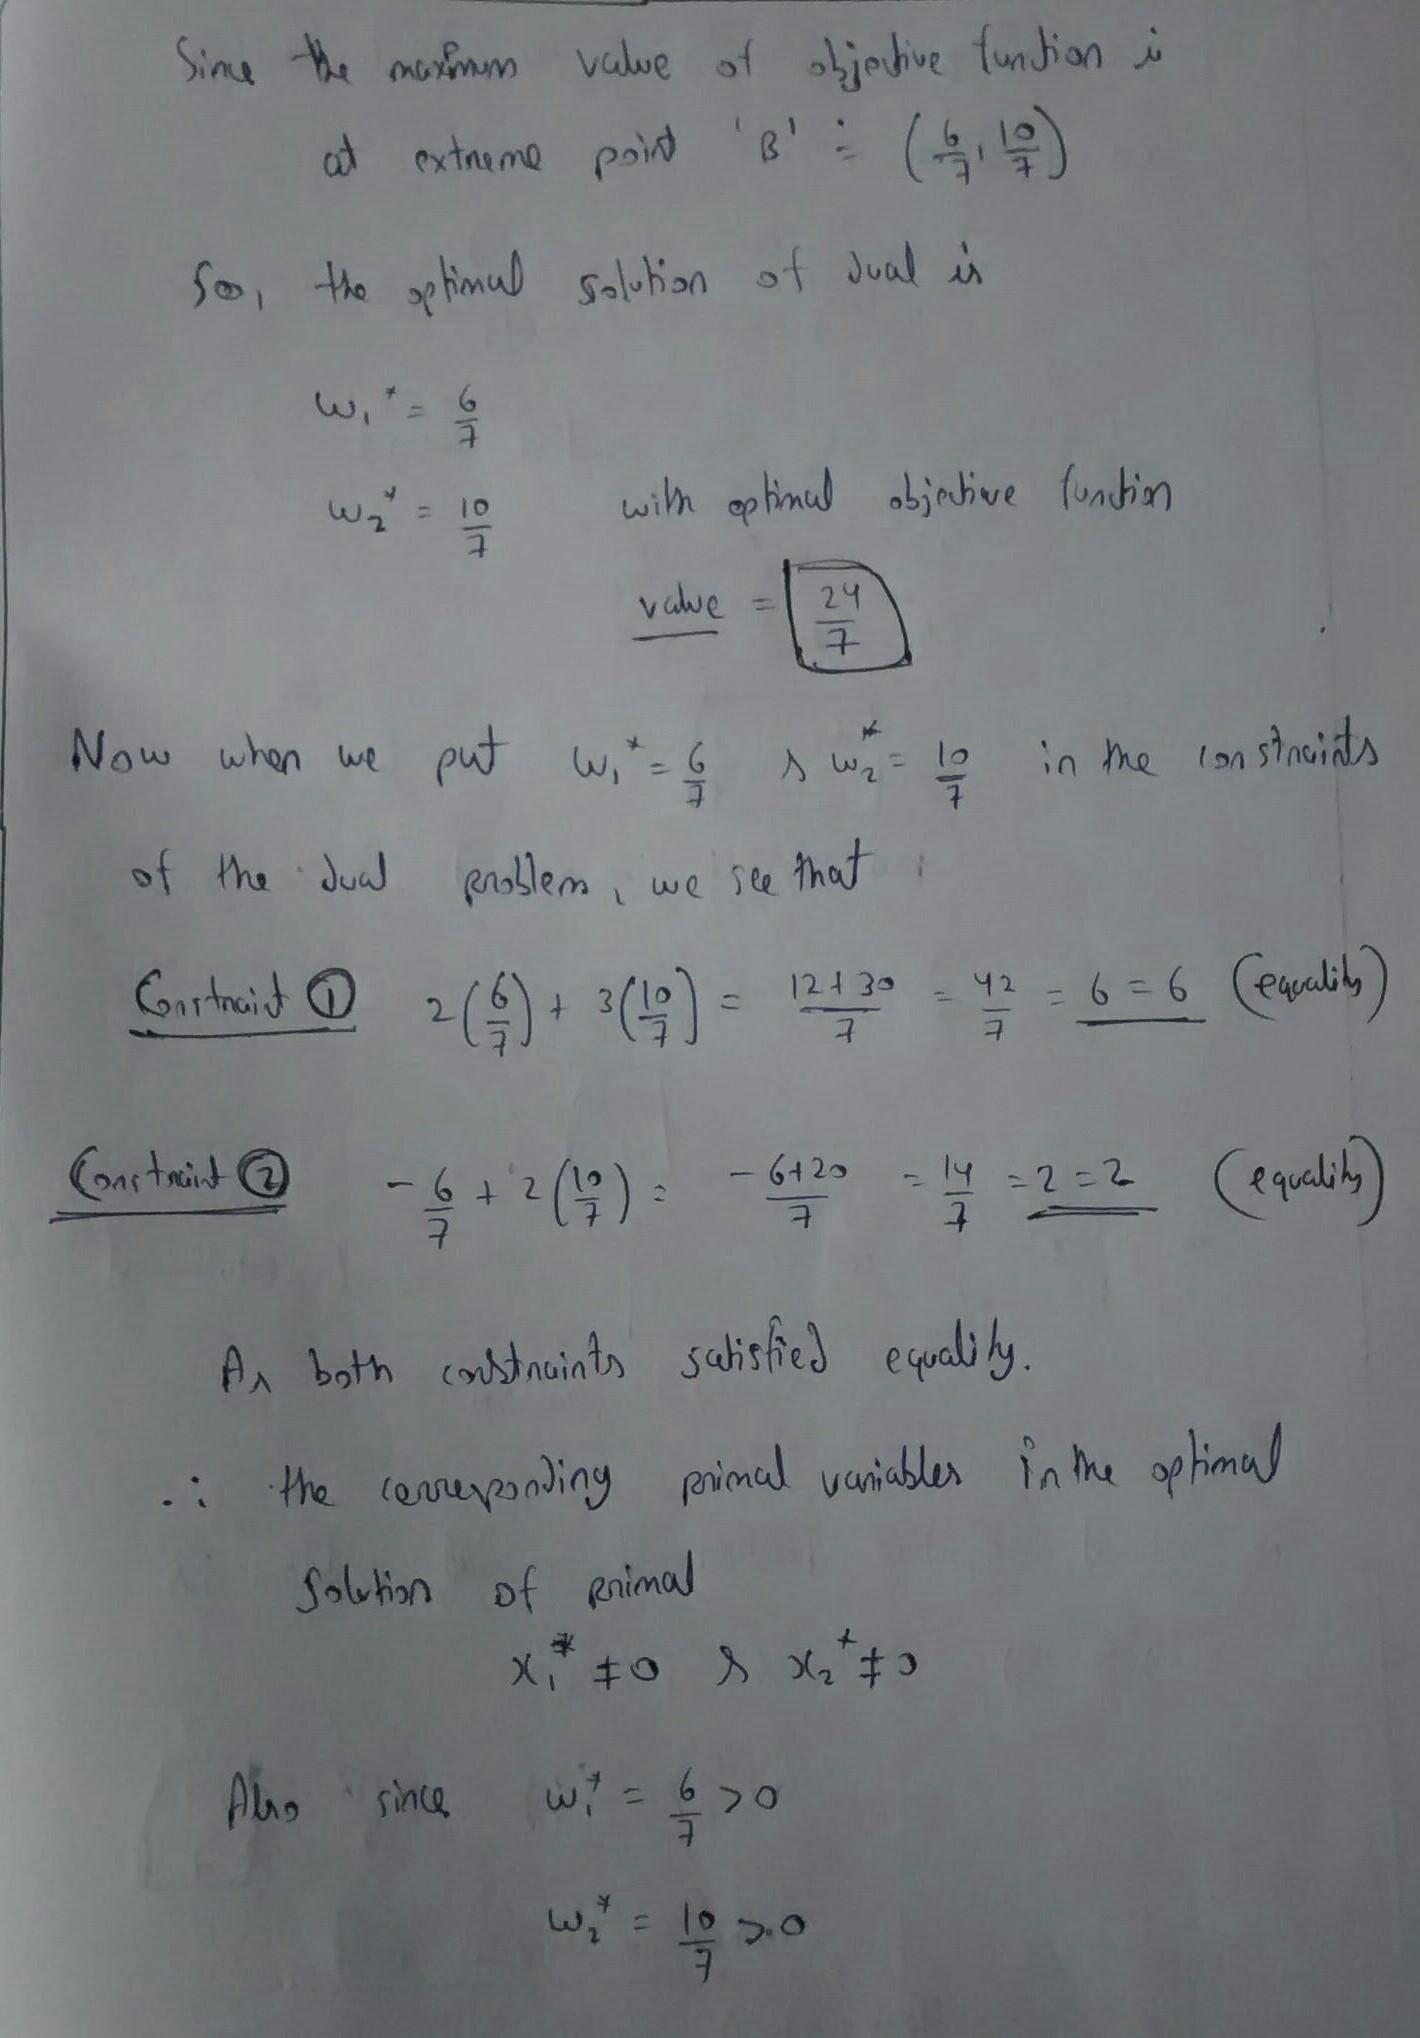 Since the maximum value of objective function is
at extreme point 'B' = (6/7, 10/7)
So, the optimal solution of dual is
w₁* = 6/7
w₂* = 10/7 with optimal objective function
value = 24/7
Now when we put w₁* = 6/7 & w₂* = 10/7 in the constraints
of the dual problem, we see that
Constraint ① 2(6/7) + 3(10/7) = 12+30/7 = 42/7 = 6 = 6 (equality)
Constraint ② -6/7 + 2(10/7) = -6+20/7 = 14/7 = 2 = 2 (equality)
As both constraints satisfied equality.
∴ the corresponding primal variables in the optimal
solution of primal
x₁* ≠ 0 & x₂* ≠ 0
Also since w₁* = 6/7 > 0
w₂* = 10/7 > 0